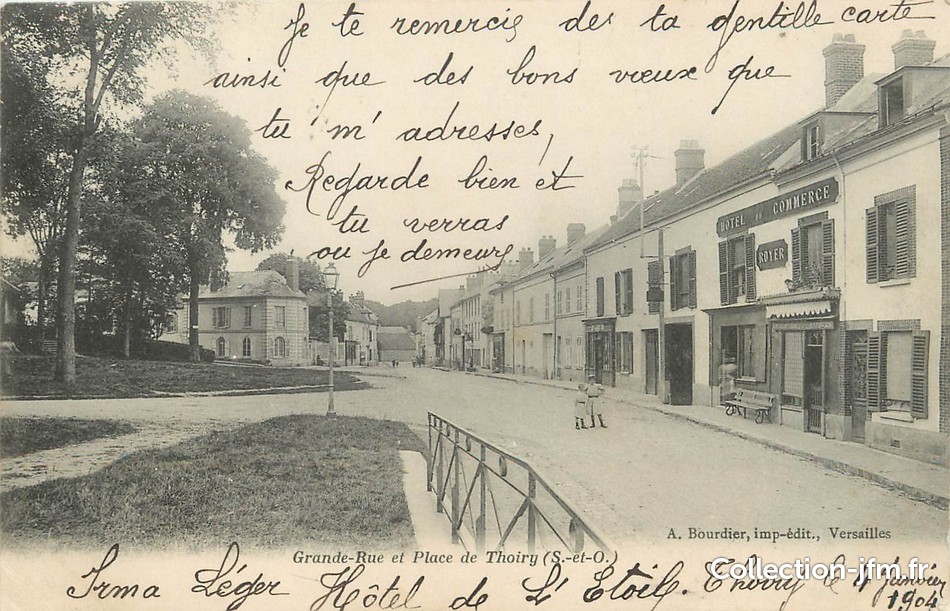 Je te remercie de ta gentille carte
ainsi que des bons vœux que
tu m'adresses,
Regarde bien et
tu verras
où je demeure
HÔTEL DU COMMERCE
ROYER
A. Bourdier, imp-édit., Versailles
Grande-Rue et Place de Thoiry (S.-et-O.)
Collection-jfm.fr
Irma Léger Hôtel de L'Etoile. Thoiry le janvier
1904